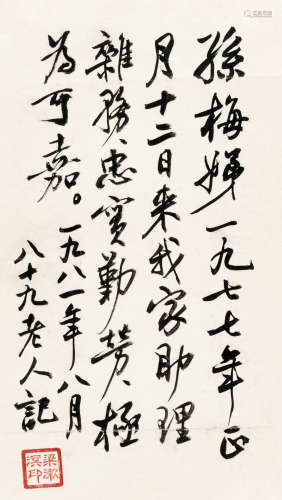 孫梅娣一九七七年正
月十二日来我家助理
雜務、忠实勤劳、極
為可嘉。一九八一年八月
八十九老人記
梁漱溟印